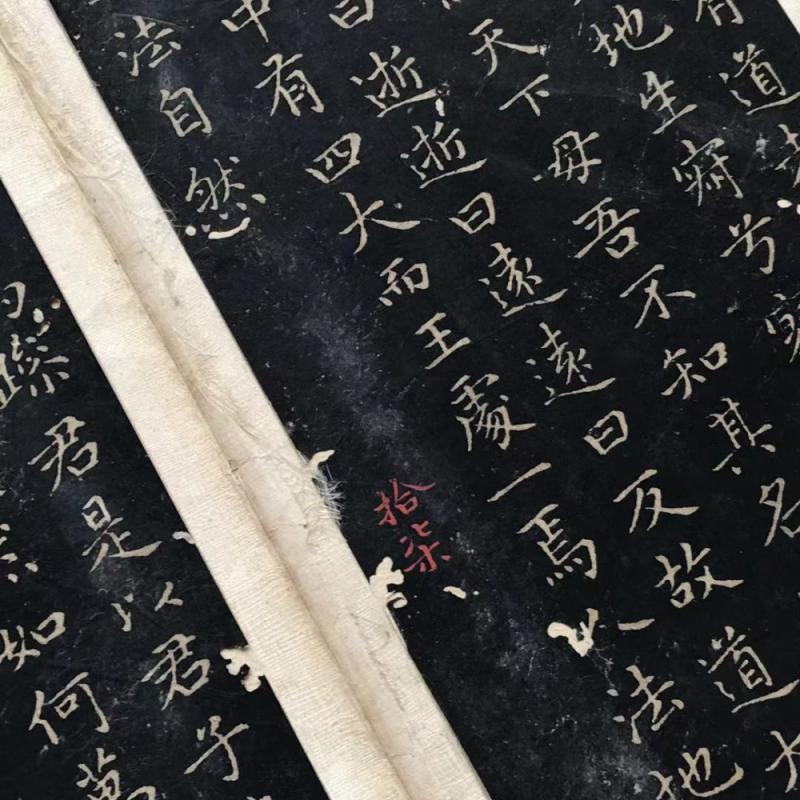 有道
地生寂兮
天下母吾不知其名
曰逝逝曰遠遠曰反故道大
中有四大而王處一焉人法地
法自然
拾柒
躁君是以君子
如何萬